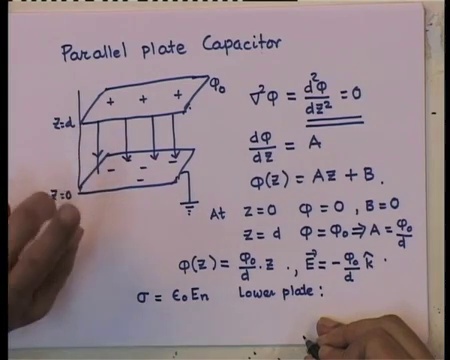 Parallel plate Capacitor
φ₀
z=d
+ + +
- - - - -
z=0
∇²φ = d²φ/dz² = 0
dφ/dz = A
φ(z) = Az + B.
At z=0 φ=0, B=0
z=d φ=φ₀ ⇒ A = φ₀/d
φ(z) = φ₀/d . z ., E⃗ = -φ₀/d k̂ .
σ = ε₀En Lower plate :